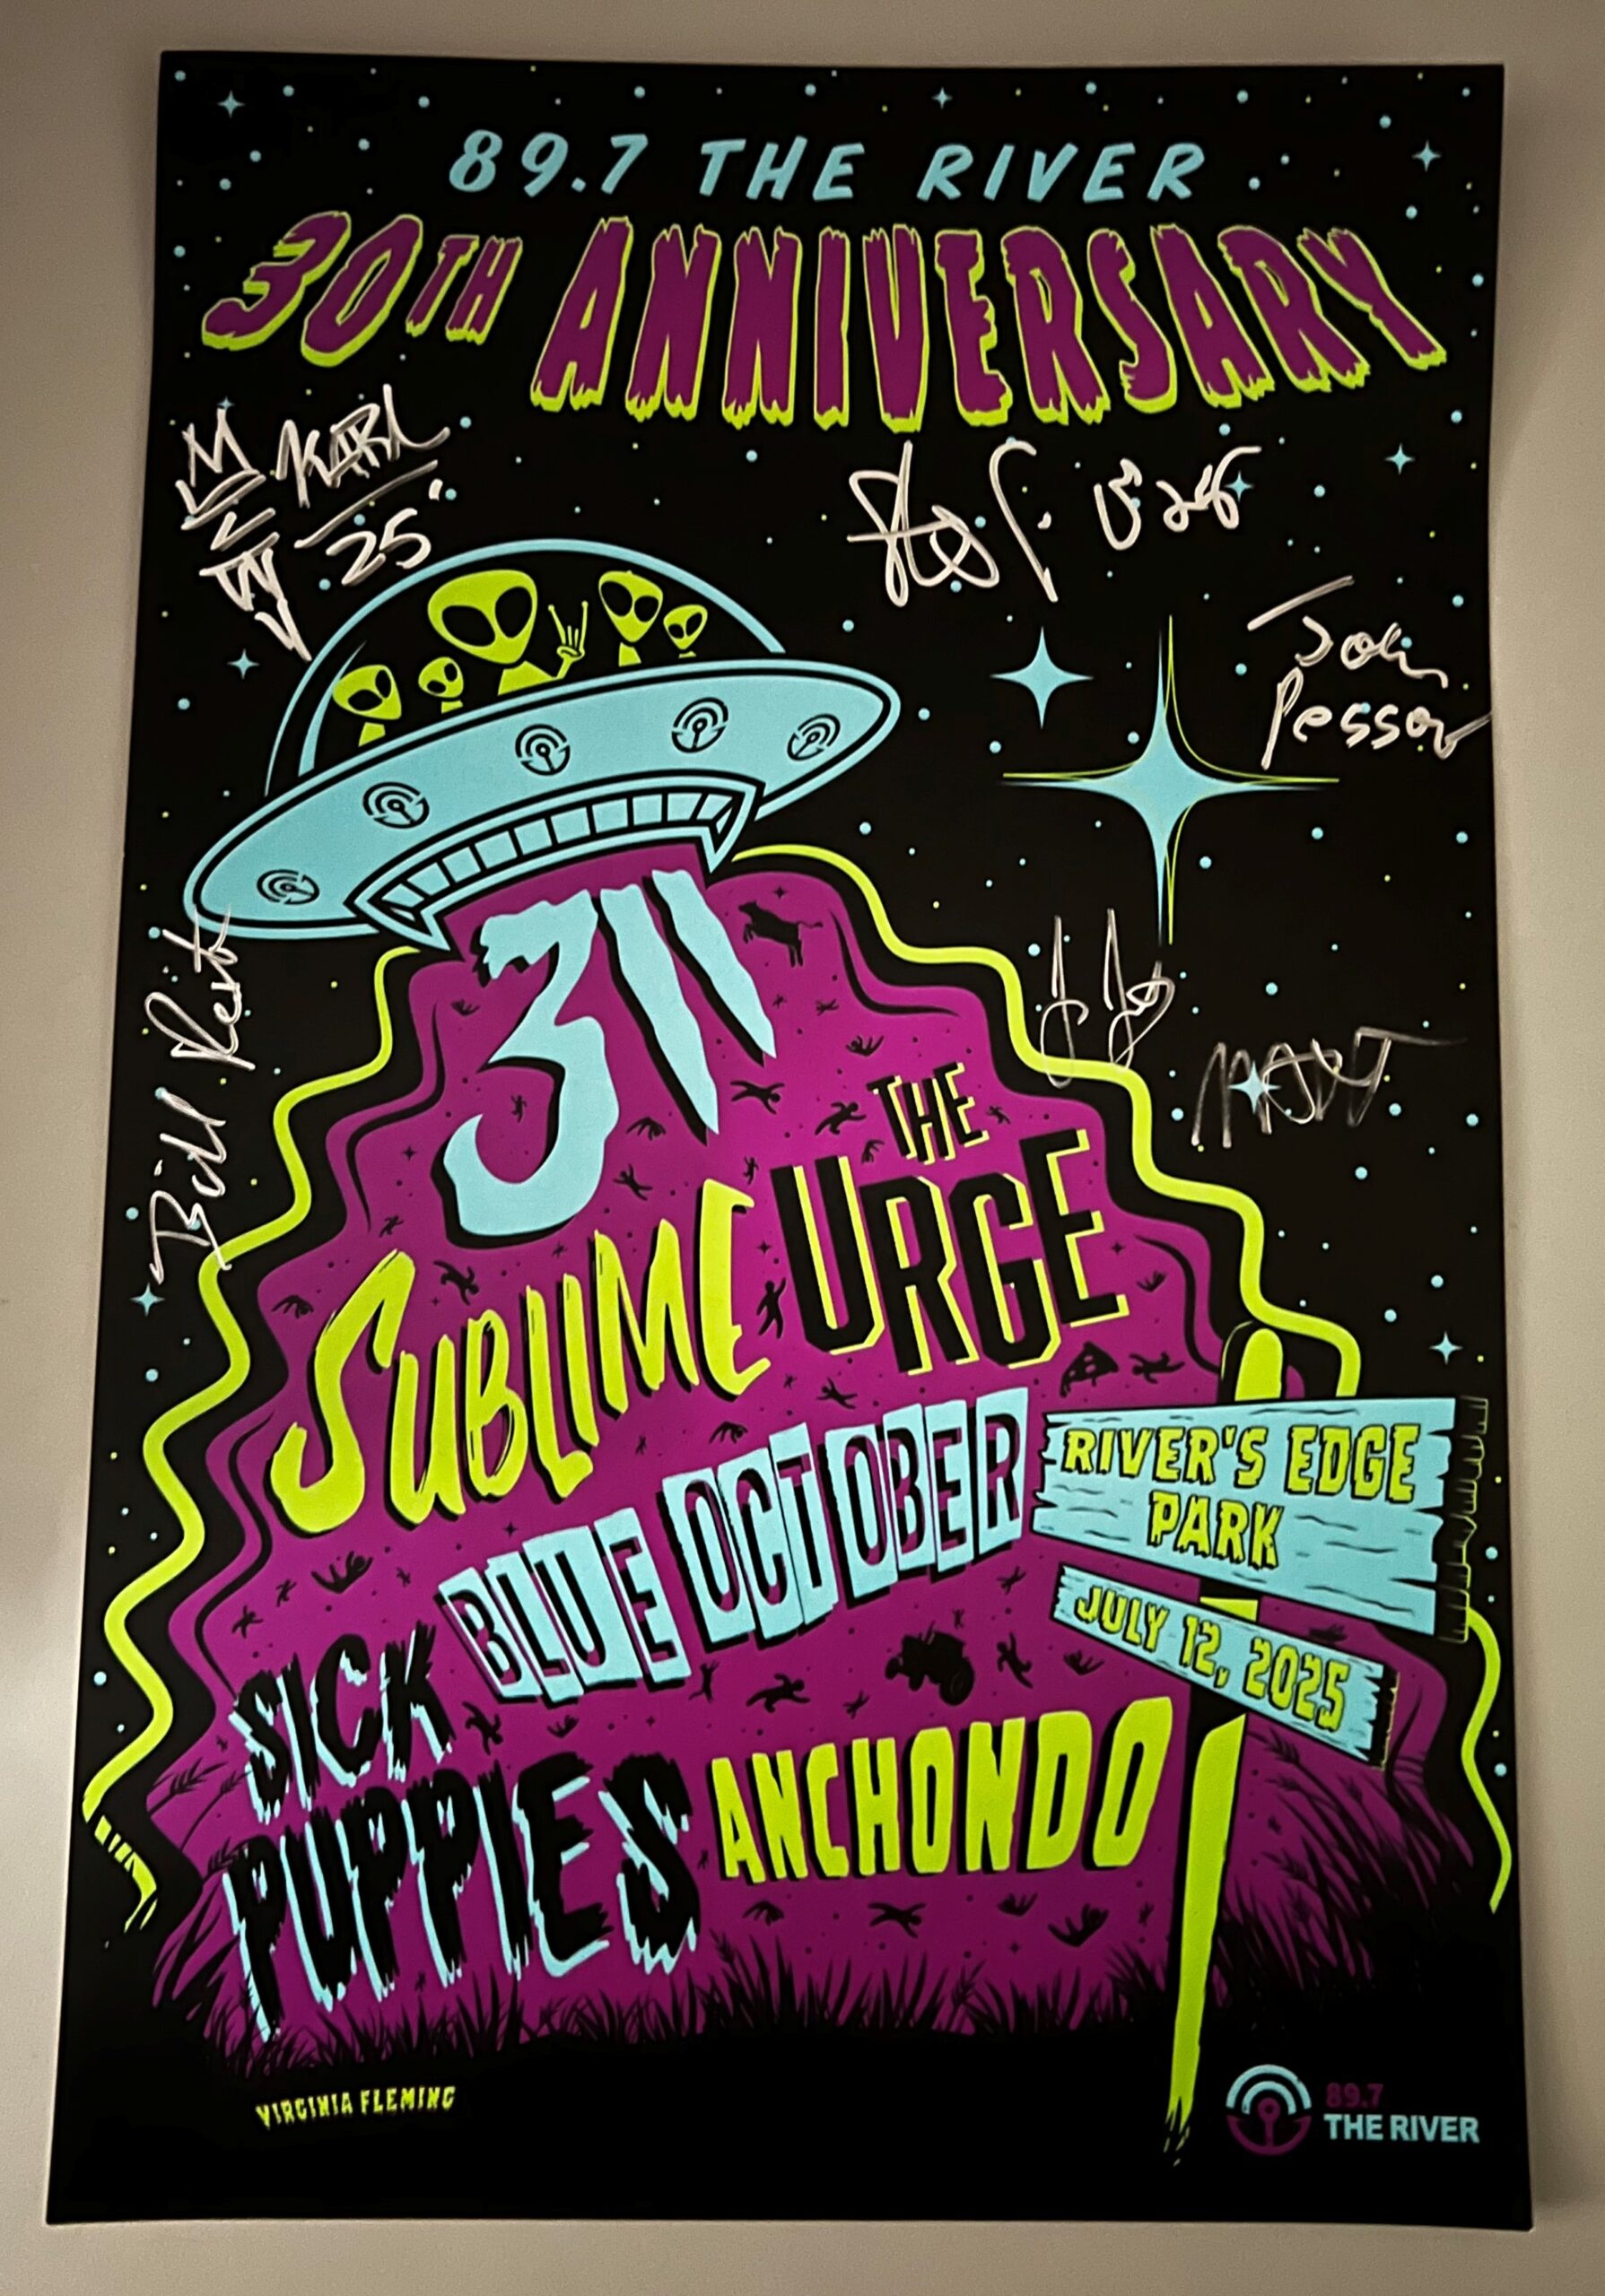 89.7 THE RIVER
30TH ANNIVERSARY
KARL
25
John
Pessoni
Bill Reit
MATT
311
THE
URGE
SUBLIME
BLUE OCTOBER
RIVER'S EDGE
PARK
JULY 12, 2025
SICK
PUPPIES
ANCHONDO
VIRGINIA FLEMING
89.7
THE RIVER